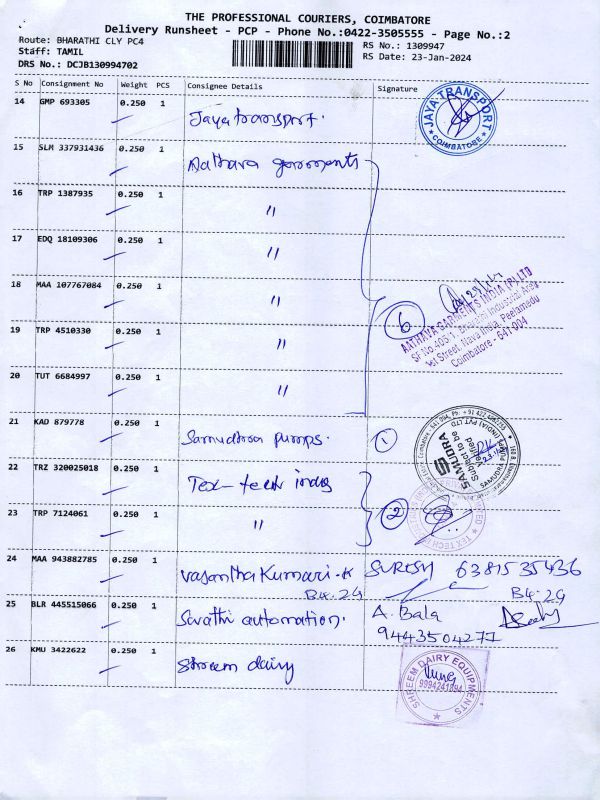 THE PROFESSIONAL COURIERS, COIMBATORE
Delivery Runsheet - PCP - Phone No.:0422-3505555 - Page No.:2
Route: BHARATHI CLY PC4
Staff: TAMIL
DRS No.: DCJB130994702
RS No.: 1309947
RS Date: 23-Jan-2024
S No Consignment No Weight PCS Consignee Details Signature
14 GMP 693305 0.250 1 Jaya transport.
JAYA TRANSPORT
COIMBATORE
15 SLM 337931436 0.250 1 Aathava garments
16 TRP 1387935 0.250 1 "
17 EDQ 18109306 0.250 1 "
18 MAA 107767084 0.250 1 "
6
AATHAVA GARMENTS INDIA (P) LTD
Street, Nava India, Peelamedu
Coimbatore - 641 004
19 TRP 4510330 0.250 1 "
20 TUT 6684997 0.250 1 "
21 KAD 879778 0.250 1 Samudra pumps. 1
SAMUDRA
Subject to be
Verified
22 TRZ 320025018 0.250 1 Tex-tech india
23 TRP 7124061 0.250 1 " 2
24 MAA 943882785 0.250 1 Vasantha Kumari.K SURESH 6381535436
B4.2G B4.2G
25 BLR 445515066 0.250 1 Sarathi automation. A. Bala
9443504277
26 KMU 3422622 0.250 1 Shreem dairy
SHREEM DAIRY EQUIPMENTS
9994241894